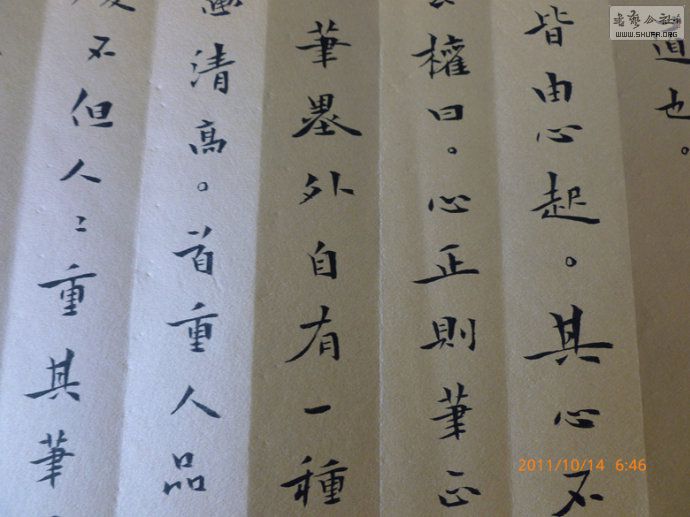 道也。
皆由心起。其心不
權曰。心正則筆正
筆墨外自有一種
清高。首重人品
不但人〻重其筆
书艺公社
WWW.SHUFA.ORG
2011/10/14 6:46